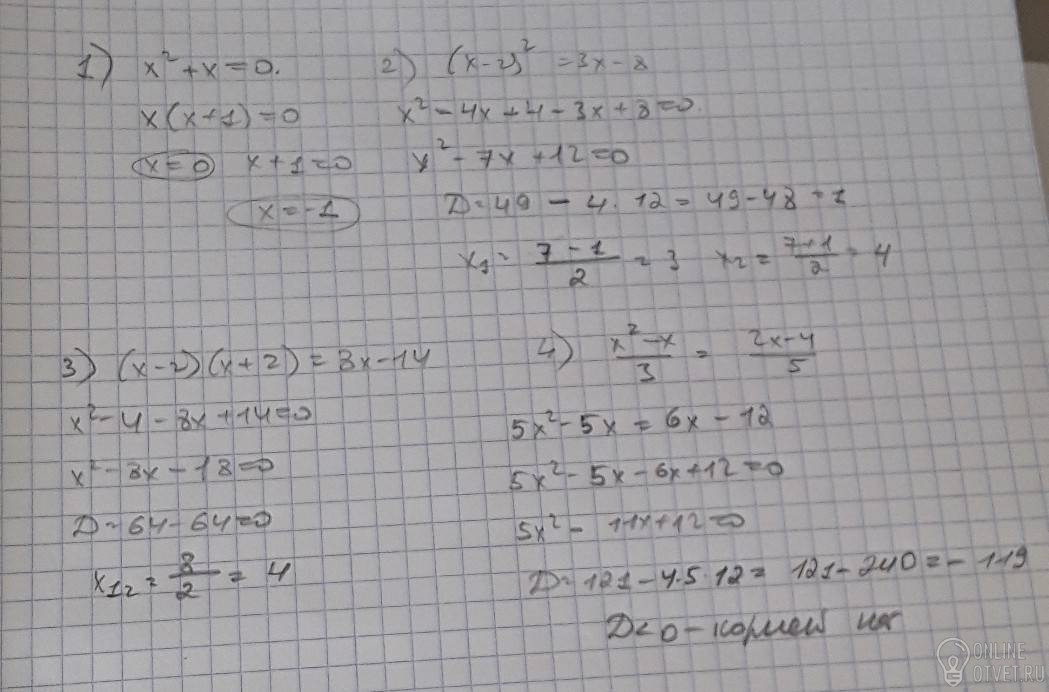 1) x² + x = 0.
x(x+1) = 0
x = 0 x + 1 = 0
x = -1
2) (x-2)² = 3x - 8
x² - 4x + 4 - 3x + 8 = 0.
x² - 7x + 12 = 0
D = 49 - 4 · 12 = 49 - 48 = 1
x₁ = (7 - 1)/2 = 3 x₂ = (7+1)/2 = 4
3) (x-2)(x+2) = 8x - 14
x² - 4 - 8x + 14 = 0
x² - 8x - 18 = 0
D = 64 - 64 = 0
x₁₂ = 8/2 = 4
4) (x² - x)/3 = (2x-4)/5
5x² - 5x = 6x - 12
5x² - 5x - 6x + 12 = 0
5x² - 11x + 12 = 0
D = 121 - 4·5·12 = 121 - 240 = - 119
D < 0 - корней нет
ONLINE
OTVET.RU